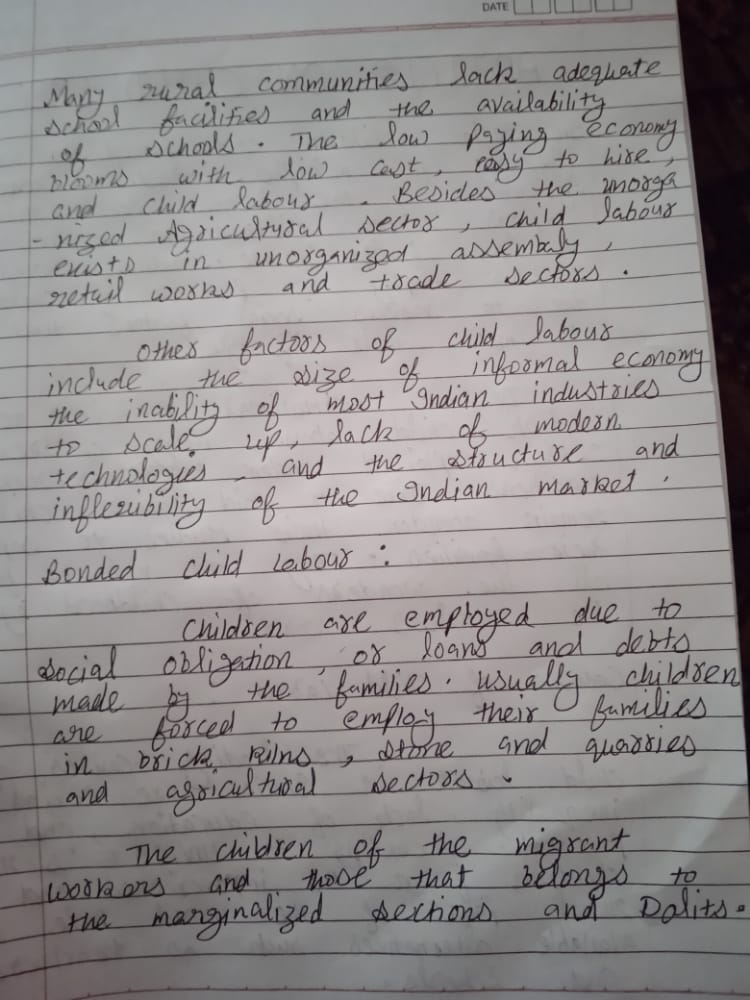 DATE
Many rural communities lack adequate
school facilities and the availability
of schools. The low paying economy
blooms with low cost, easy to hire,
and child labour. Besides the unorga
-nized Agricultural sector, child labour
exists in unorganized assembaly,
retail works and trade sectors.
Other factors of child labour
include the size of informal economy
the inability of most Indian industries
to scale up, lack of modern
technologies, and the structure and
inflexibility of the Indian market.
Bonded child Labour :
Children are employed due to
social obligation, or loans and debts
made by the families. usually children
are forced to employ their families
in brick kilns, stone and quarries
and agricultural sectors.
The children of the migrant
workers and those that belongs to
the marginalized sections and Dalits.